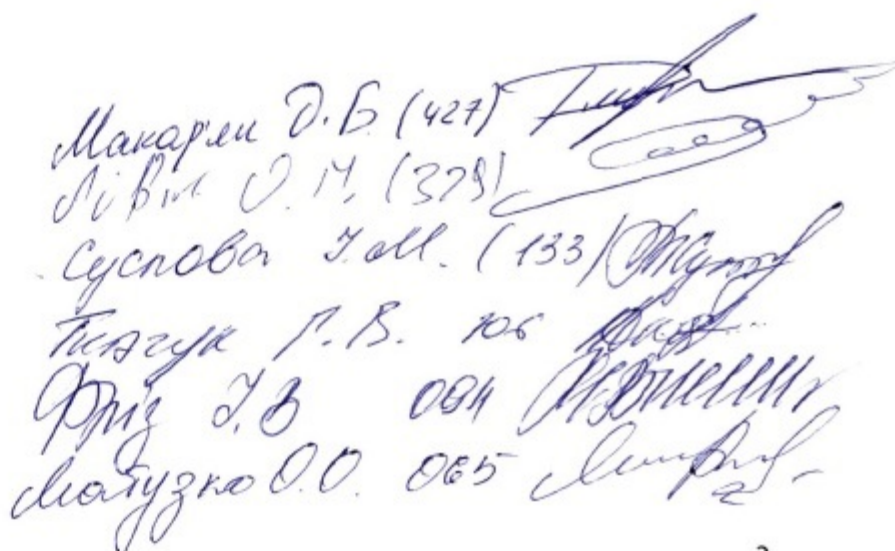 Макар'ян Д.Б. (427)
Лівік О.М. (379)
Суслова І.М. (133)
Ткачук Г.В. 106
Фріз І.В 084
Матузко О.О. 065